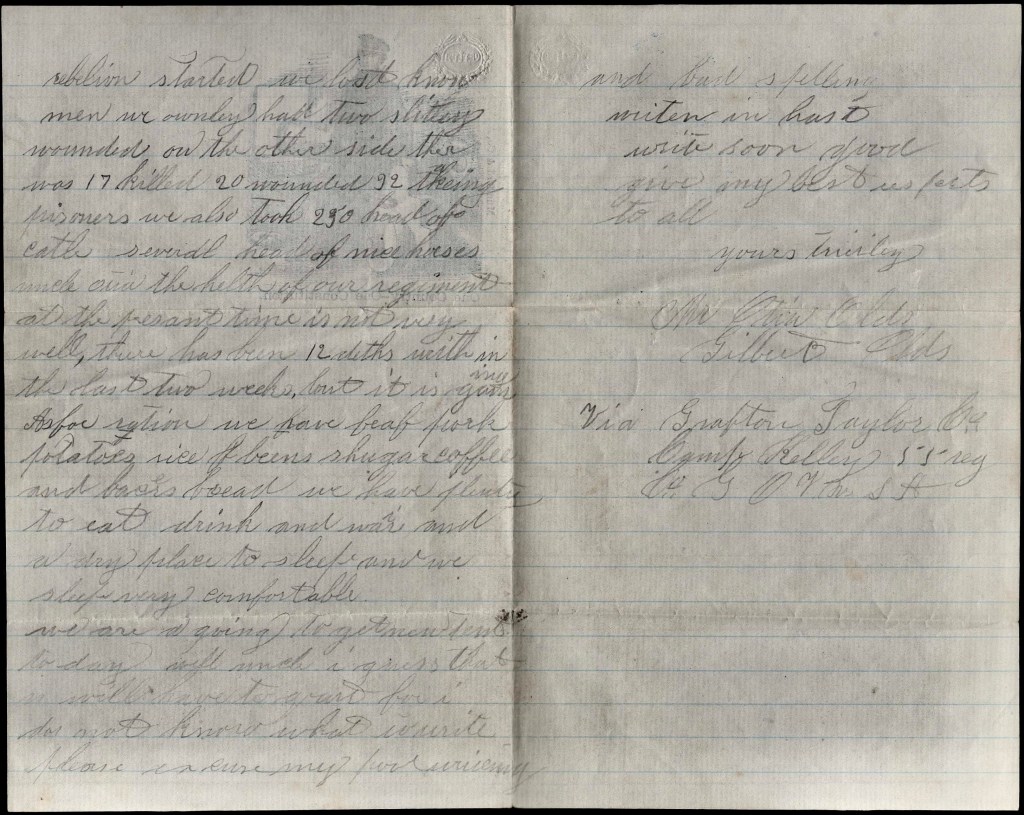 rebelion started we lost know
men we ownley had two slitley
wounded on the other side ther
was 17 killed 20 wounded 92 taking
prisoners we also took 250 head of
catle several head of nice horses
uncle the helth of our regiment
at the presant time is not very
well, there has been 12 deths with in
the last two weeks, but it is gaining
As for ration we have beaf pork
potatoes rice & beens shugar coffee
and bread we have plenty
to eat drink and ware and
a dry place to sleep and we
sleep very comfortable
we are a going to get new tents
to day well uncle i guess that
will have to for i
do not know what to write
please excuse my poor writing
and bad spelling
writen in hast
write soon good
give my best respects
to all
yours truley
Mr Olds
Gilbert Olds
Via Grafton Taylor Co
Camp Kelley 55 reg
Co G O V M S A